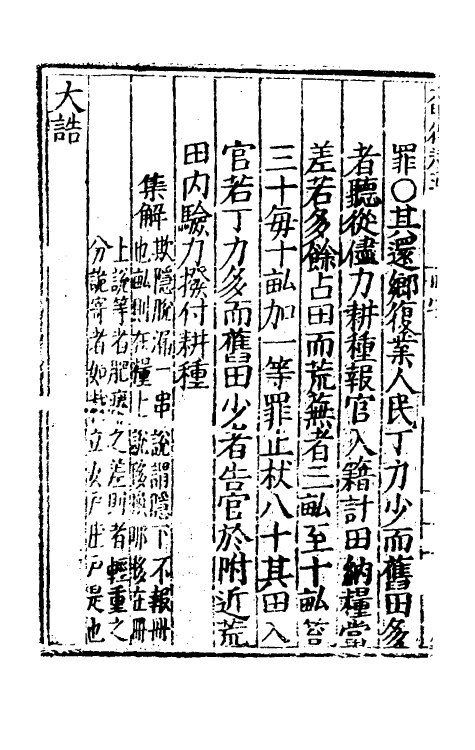 罪○其還鄉復業人民丁力少而舊田多
者聽從儘力耕種報官入籍計田納糧當
差若多餘占田而荒蕪者三畝至十畝笞
三十每十畝加一等罪止杖八十其田入
官若丁力多而舊田少者告官於附近荒
田内驗力撥付耕種
集解 欺隱脫漏一串說謂隱下不報冊
也畝則在糧上說移那移在冊
上說等者肥之差則者輕重之
分詭寄者如立女戶庄戶是也
大誥